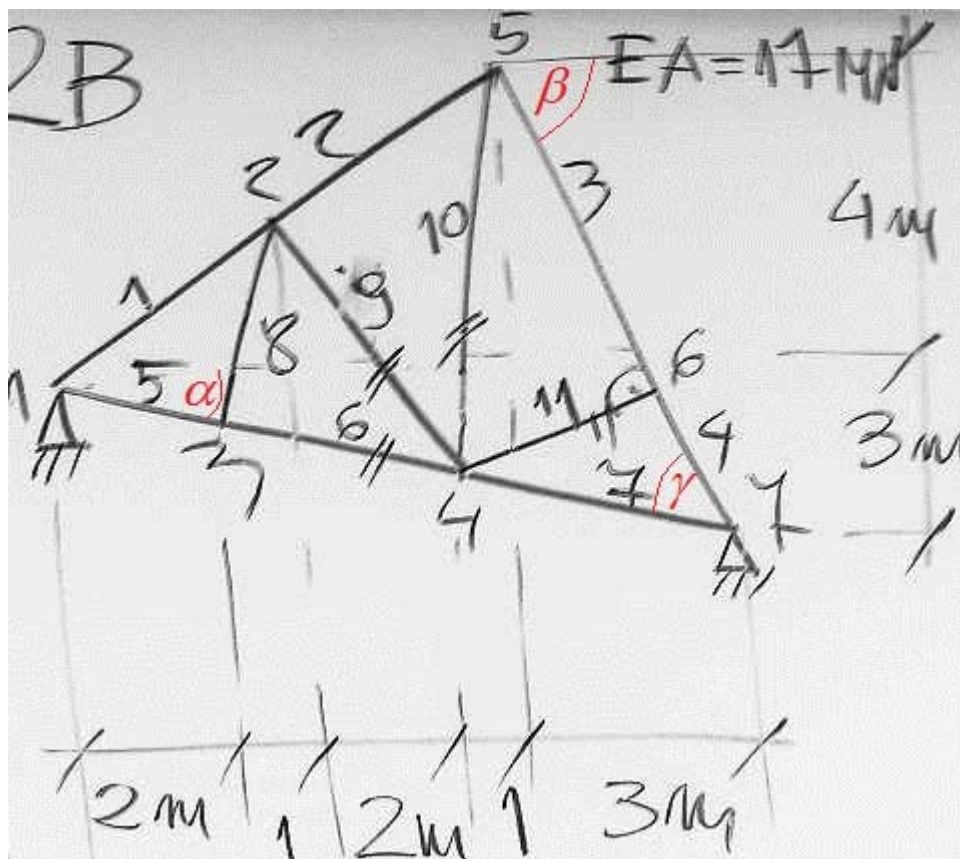 2B
5
EA=17MN
β
2
3
2
4m
10
1
9
8
6
1
5
α
11
3m
6
4
7
γ
3
7
4
2m
1
2m
1
3m